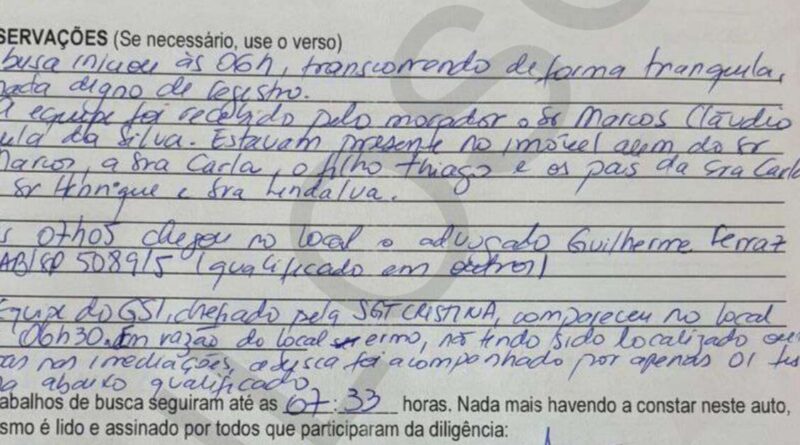 SERVAÇÕES (Se necessário, use o verso)
busca iniciou às 06h, transcorrendo de forma tranquila,
nada digno de registro.
A equipe foi recebido pelo morador o Sr Marcos Cláudio
ula da Silva. Estavam presente no imóvel alem do Sr
Marcos, a Sra Carla, o filho Thiago e os pais da Sra Carla
Sr Henrique e Sra Lindalva.
s 07h05 chegou no local o advogado Guilherme Ferraz
AB/SP 508915 (qualificado em outros)
Equipe do GSI, chefiado pela SGT CRISTINA, compareceu no local
06h30. Em razão do local ermo, não tendo sido localizado ou
as nas imediações, a busca foi acompanhado por apenas 01 tes
a abaixo qualificado.
abalhos de busca seguiram até as 07:33 horas. Nada mais havendo a constar neste auto,
smo é lido e assinado por todos que participaram da diligência: